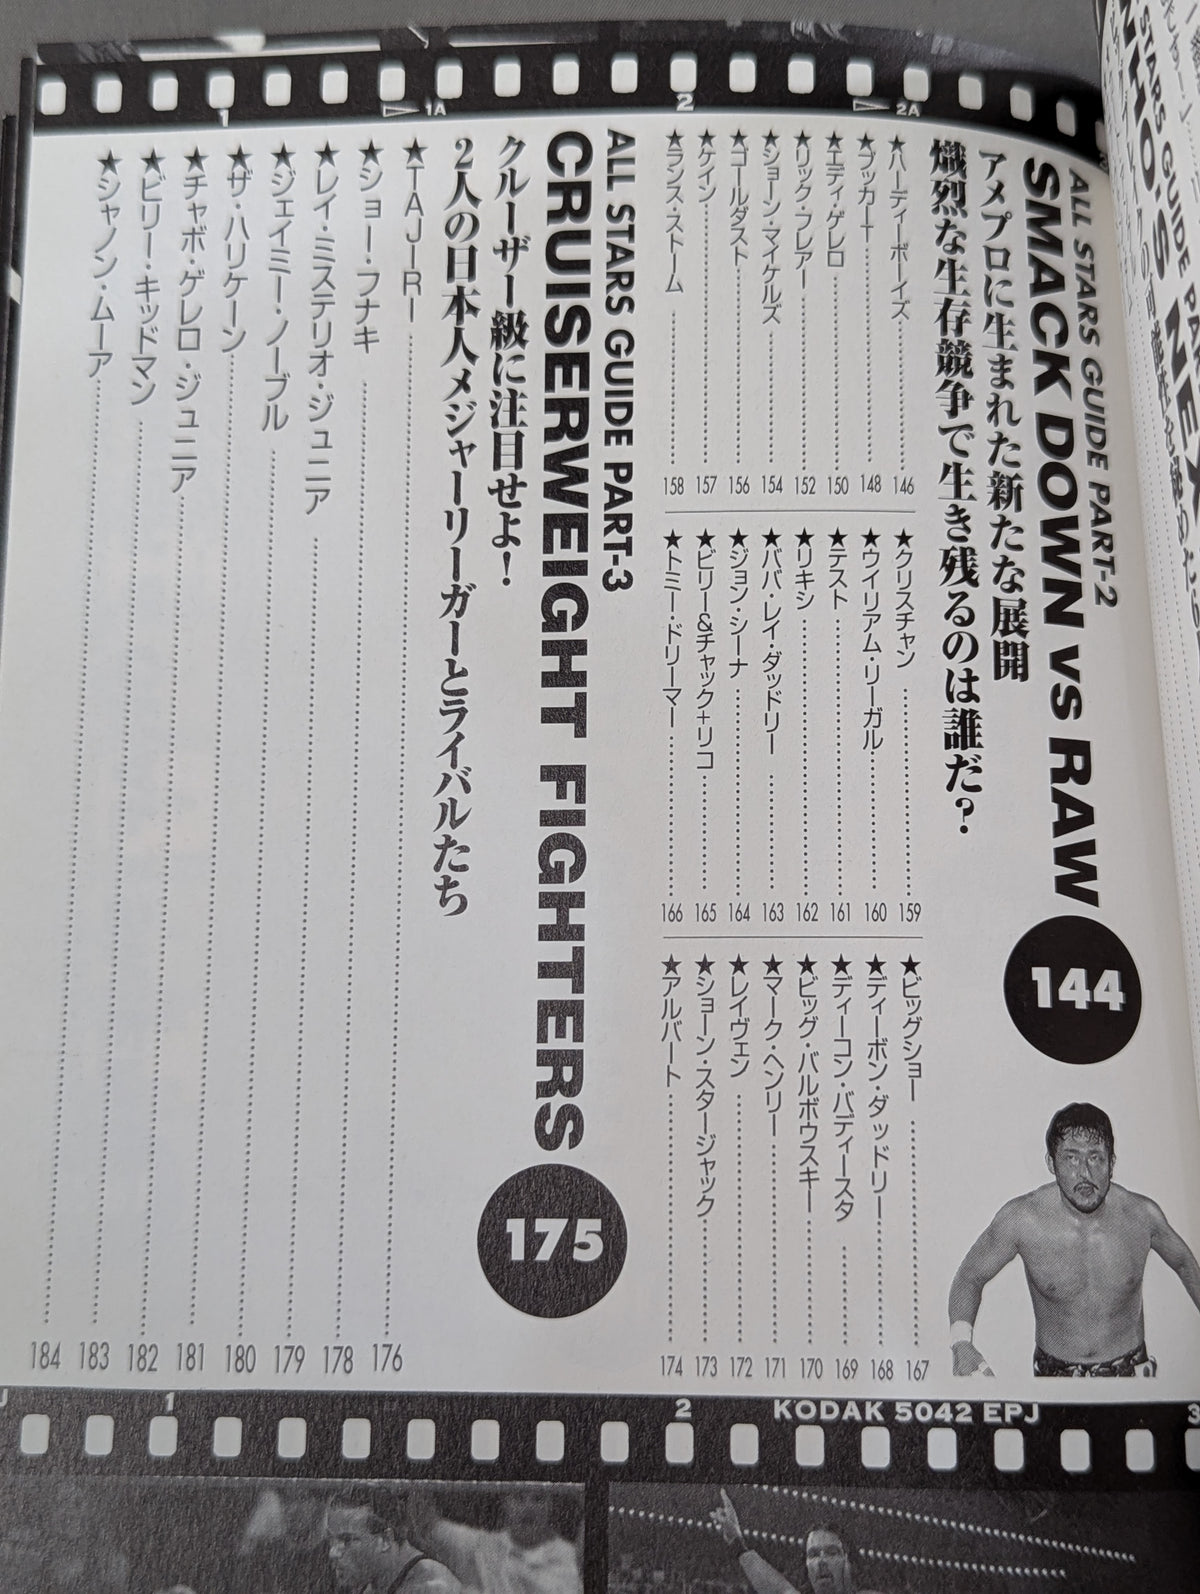 ALL STARS GUIDE PART-2
SMACK DOWN vs RAW
144
アメプロに生まれた新たな展開
熾烈な生存競争で生き残るのは誰だ?
★ハーディーボーイズ 146
★ブッカーT 148
★エディ・ゲレロ 150
★リック・フレアー 152
★ショーン・マイケルズ 154
★ゴールダスト 156
★ケイン 157
★ランス・ストーム 158
★クリスチャン 159
★ウイリアム・リーガル 160
★テスト 161
★リキシ 162
★ババ・レイ・ダッドリー 163
★ジョン・シーナ 164
★ビリー&チャック+リコ 165
★トミー・ドリーマー 166
★ビッグショー 167
★ディーボン・ダッドリー 168
★ディーコン・バティースタ 169
★ビッグ・バルボウスキー 170
★マーク・ヘンリー 171
★レイヴェン 172
★ショーン・スタージャック 173
★アルバート 174
ALL STARS GUIDE PART-3
CRUISERWEIGHT FIGHTERS
175
クルーザー級に注目せよ!
2人の日本人メジャーリーガーとライバルたち
★TAJIRI 176
★ショー・フナキ 178
★レイ・ミステリオ・ジュニア 179
★ジェイミー・ノーブル 180
★ザ・ハリケーン 181
★チャボ・ゲレロ・ジュニア 182
★ビリー・キッドマン 183
★シャノン・ムーア 184
1
1A
2
2A
1
2
KODAK 5042 EPJ
3